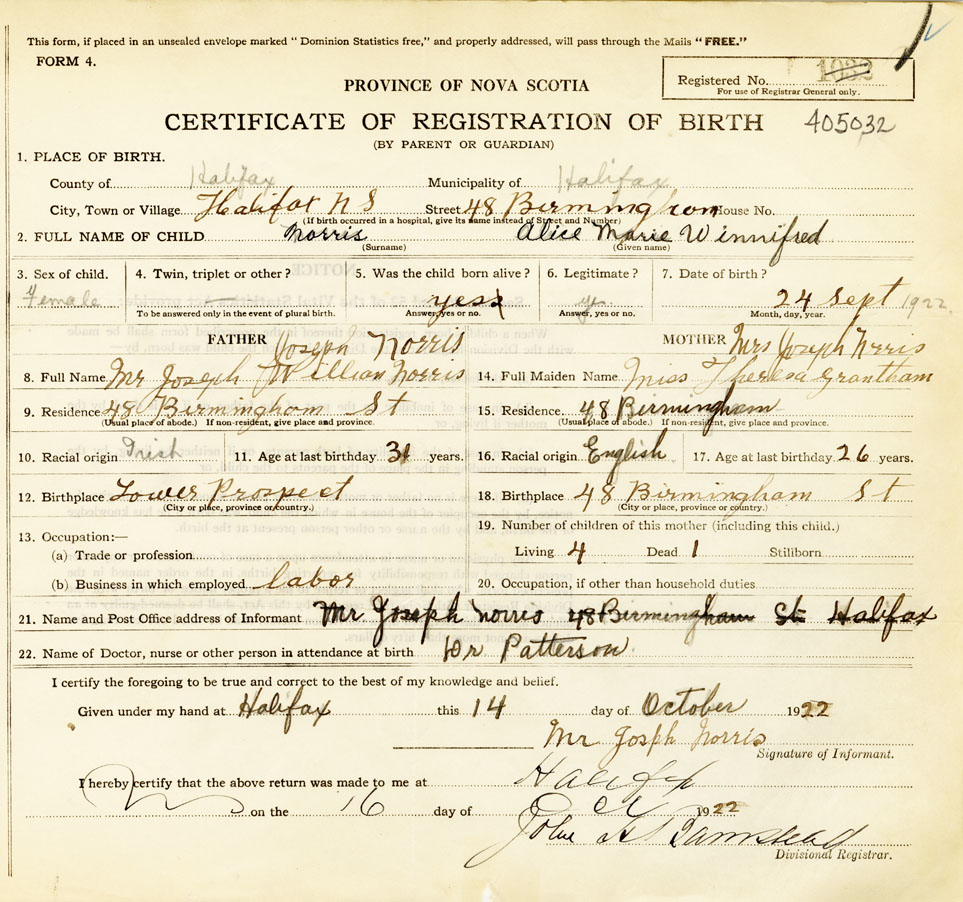 This form, if placed in an unsealed envelope marked "Dominion Statistics free," and properly addressed, will pass through the Mails "FREE."
FORM 4.
PROVINCE OF NOVA SCOTIA
Registered No. 1032
For use of Registrar General only.
CERTIFICATE OF REGISTRATION OF BIRTH 405032
(BY PARENT OR GUARDIAN)
1. PLACE OF BIRTH.
County of Halifax Municipality of Halifax
City, Town or Village Halifax N S Street 48 Birmingham House No.
(If birth occurred in a hospital, give its name instead of Street and Number)
2. FULL NAME OF CHILD Norris Alice Marie Winnifred
(Surname) (Given name)
3. Sex of child. 4. Twin, triplet or other? 5. Was the child born alive? 6. Legitimate? 7. Date of birth?
Female yes yes 24 Sept 1922
To be answered only in the event of plural birth. Answer, yes or no. Answer, yes or no. Month, day, year.
FATHER Joseph Norris MOTHER Mrs Joseph Norris
8. Full Name Mr Joseph William Norris 14. Full Maiden Name Miss Theresa Grantham
9. Residence 48 Birmingham St 15. Residence. 48 Birmingham
(Usual place of abode.) If non-resident, give place and province. (Usual place of abode.) If non-resident, give place and province.
10. Racial origin Irish 11. Age at last birthday 31 years. 16. Racial origin English 17. Age at last birthday 26 years.
12. Birthplace Lower Prospect 18. Birthplace 48 Birmingham St
(City or place, province or country.) (City or place, province or country.)
13. Occupation:— 19. Number of children of this mother (including this child.)
(a) Trade or profession Living 4 Dead 1 Stillborn
(b) Business in which employed labor 20. Occupation, if other than household duties
21. Name and Post Office address of Informant Mr Joseph Norris 48 Birmingham St Halifax
22. Name of Doctor, nurse or other person in attendance at birth Dr Patterson
I certify the foregoing to be true and correct to the best of my knowledge and belief.
Given under my hand at Halifax this 14 day of October 1922
Mr Josph Norris
Signature of Informant.
I hereby certify that the above return was made to me at Halifax
on the 16 day of 1922
John
Divisional Registrar.